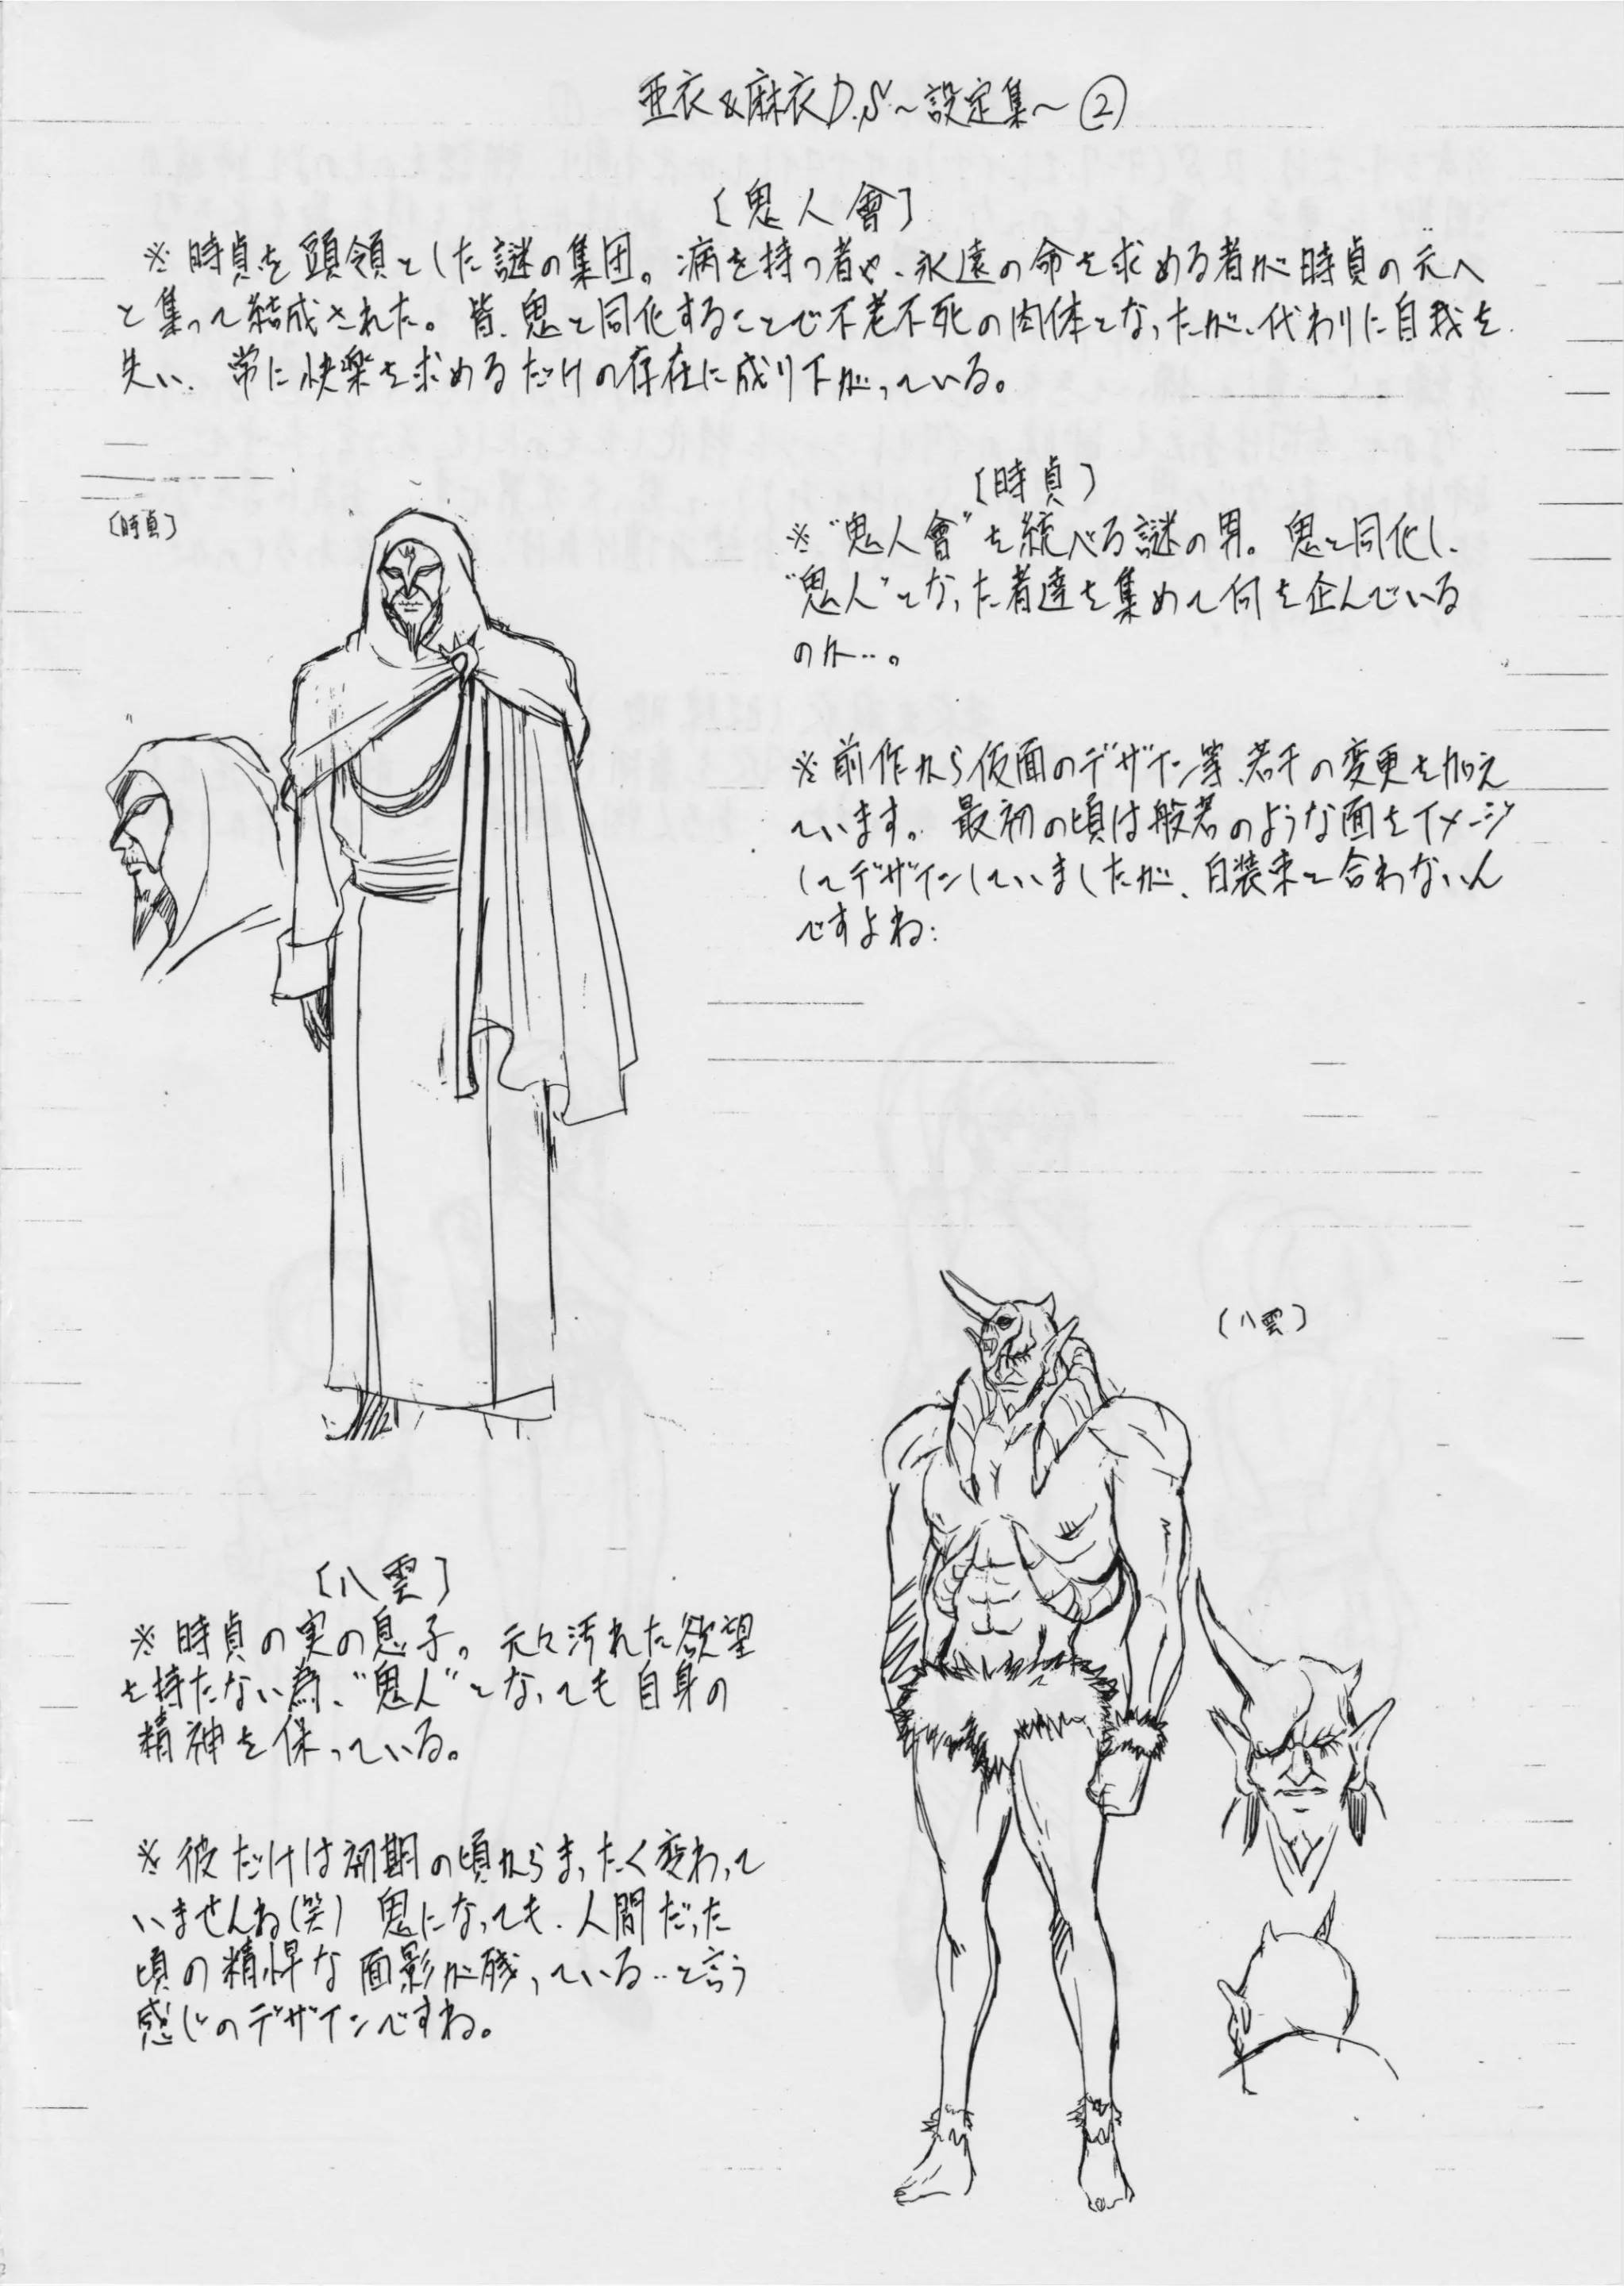 亜衣&麻衣D.S.～設定集～②
〔鬼人會〕
※時貞を頭領とした謎の集団。病を持つ者や、永遠の命を求める者が時貞の元へ
と集って結成された。皆、鬼と同化することで不老不死の肉体となったが、代わりに自我を
失い、常に快楽を求めるだけの存在に成り下がっている。
〔時貞〕
〔時貞〕
※“鬼人會”を統べる謎の男。鬼と同化し、
“鬼人”となった者達を集めて何を企んでいる
のか…。
※前作から仮面のデザイン等、若干の変更を加え
ています。最初の頃は般若のような面をイメージ
してデザインしていましたが、白装束と合わないん
ですよね…
〔八雲〕
〔八雲〕
※時貞の実の息子。元々汚れた欲望
を持たない為、“鬼人”となっても自身の
精神を保っている。
※彼だけは初期の頃からまったく変わって
いませんね(笑) 鬼になっても、人間だった
頃の精悍な面影が残っている…と言う
感じのデザインですね。